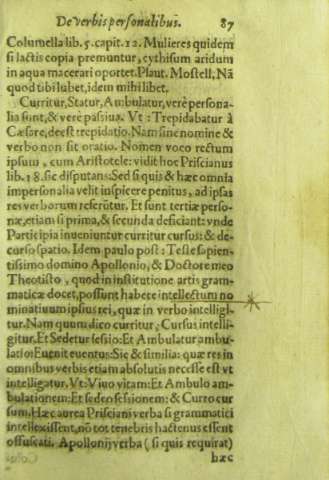 De verbis personalibus. 87
Columella lib. 5. capit. 12. Mulieres quidem
si lactis copia premuntur, cythisum aridum
in aqua macerari oportet. Plaut. Mostell, Nã
quod tibi lubet, idem mihi libet.
Curritur, Statur, Ambulatur, verè persona-
lia sunt, & verè passiua. Vt: Trepidabatur à
Cæsare, deest trepidatio. Nam sine nomine &
verbo non sit oratio. Nomen voco rectum
ipsum, cum Aristotele: vidit hoc Priscianus
lib. 18. sic disputans: Sed si quis & hæc omnia
impersonalia velit inspicere penitus, ad ipsas
res verborum referũtur. Et sunt tertiæ perso-
næ, etiam si prima, & secunda deficiant: vnde
Participia inueniuntur curritur cursus: & de-
curso spatio. Idem paulo post: Teste sapien-
tissimo domino Apollonio, & Doctore meo
Theotisto, quod in institutione artis gram-
maticæ docet, possunt habere intellectum no
minatiuum ipsius rei, quæ in verbo intelligi-
tur. Nam quum dico curritur, Cursus intelli-
gitur. Et Sedetur sessio: Et Ambulatur ambu-
latio Euenit euentus: Sic & similia: quæ res in
omnibus verbis etiam absolutis necesse est vt
intelligatur. Vt: Viuo vitam: Et Ambulo am-
bulationem: Et sedeo sessionem: & Curro cur
sum. Hæc aurea Prisciani verba si grammatici
intellexissent, nõ tot tenebris hactenus essent
offuscati. Apollonij verba (si quis requirat)
hæc